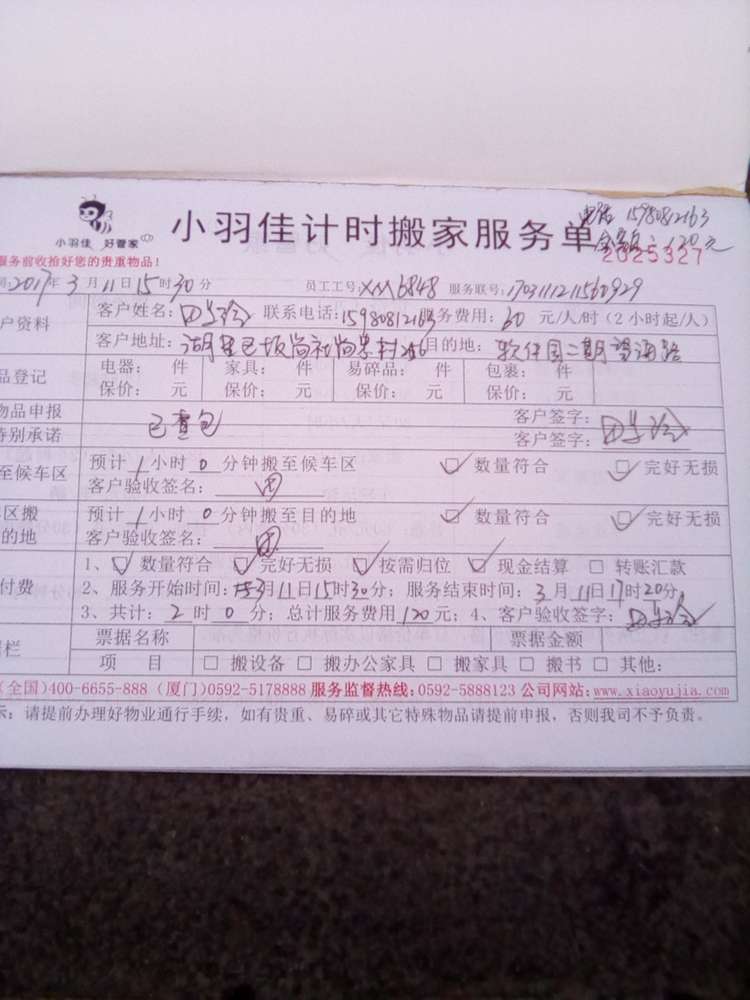 电话 15980812163
小羽佳 好管家
小羽佳计时搬家服务单 金额:120元
服务前收拾好您的贵重物品! 2025327
2017年3月11日15时30分 员工工号:XM6848 服务联号:1703111211560929
户资料 客户姓名: 联系电话:15980812163务费用:60 元/人/时(2小时起/人)
客户地址: 目的地:软件园二期望海路
品登记 电器: 件 家具: 件 易碎品: 件 包裹: 件
保价: 元 保价: 元 保价: 元 保价: 元
物品申报 已查包 客户签字:
特别承诺 客户签字:
至候车区 预计1小时0分钟搬至候车区 ☑数量符合 ☑完好无损
客户验收签名:田
区搬 预计1小时0分钟搬至目的地 ☑数量符合 ☑完好无损
的地 客户验收签名:田
1、☑数量符合 ☑完好无损 ☑按需归位 ☑现金结算 □ 转账汇款
付费 2、服务开始时间:3月11日15时30分;服务结束时间:3月11日17时20分,
3、共计:2时0分;总计服务费用120元;4、客户验收签字:
栏 票据名称 票据金额
项 目 □ 搬设备 □ 搬办公家具 □ 搬家具 □ 搬书 □ 其他:
(全国)400-6655-888 (厦门)0592-5178888 服务监督热线:0592-5888123 公司网站:www.xiaoyujia.com
示:请提前办理好物业通行手续,如有贵重、易碎或其它特殊物品请提前申报,否则我司不予负责。